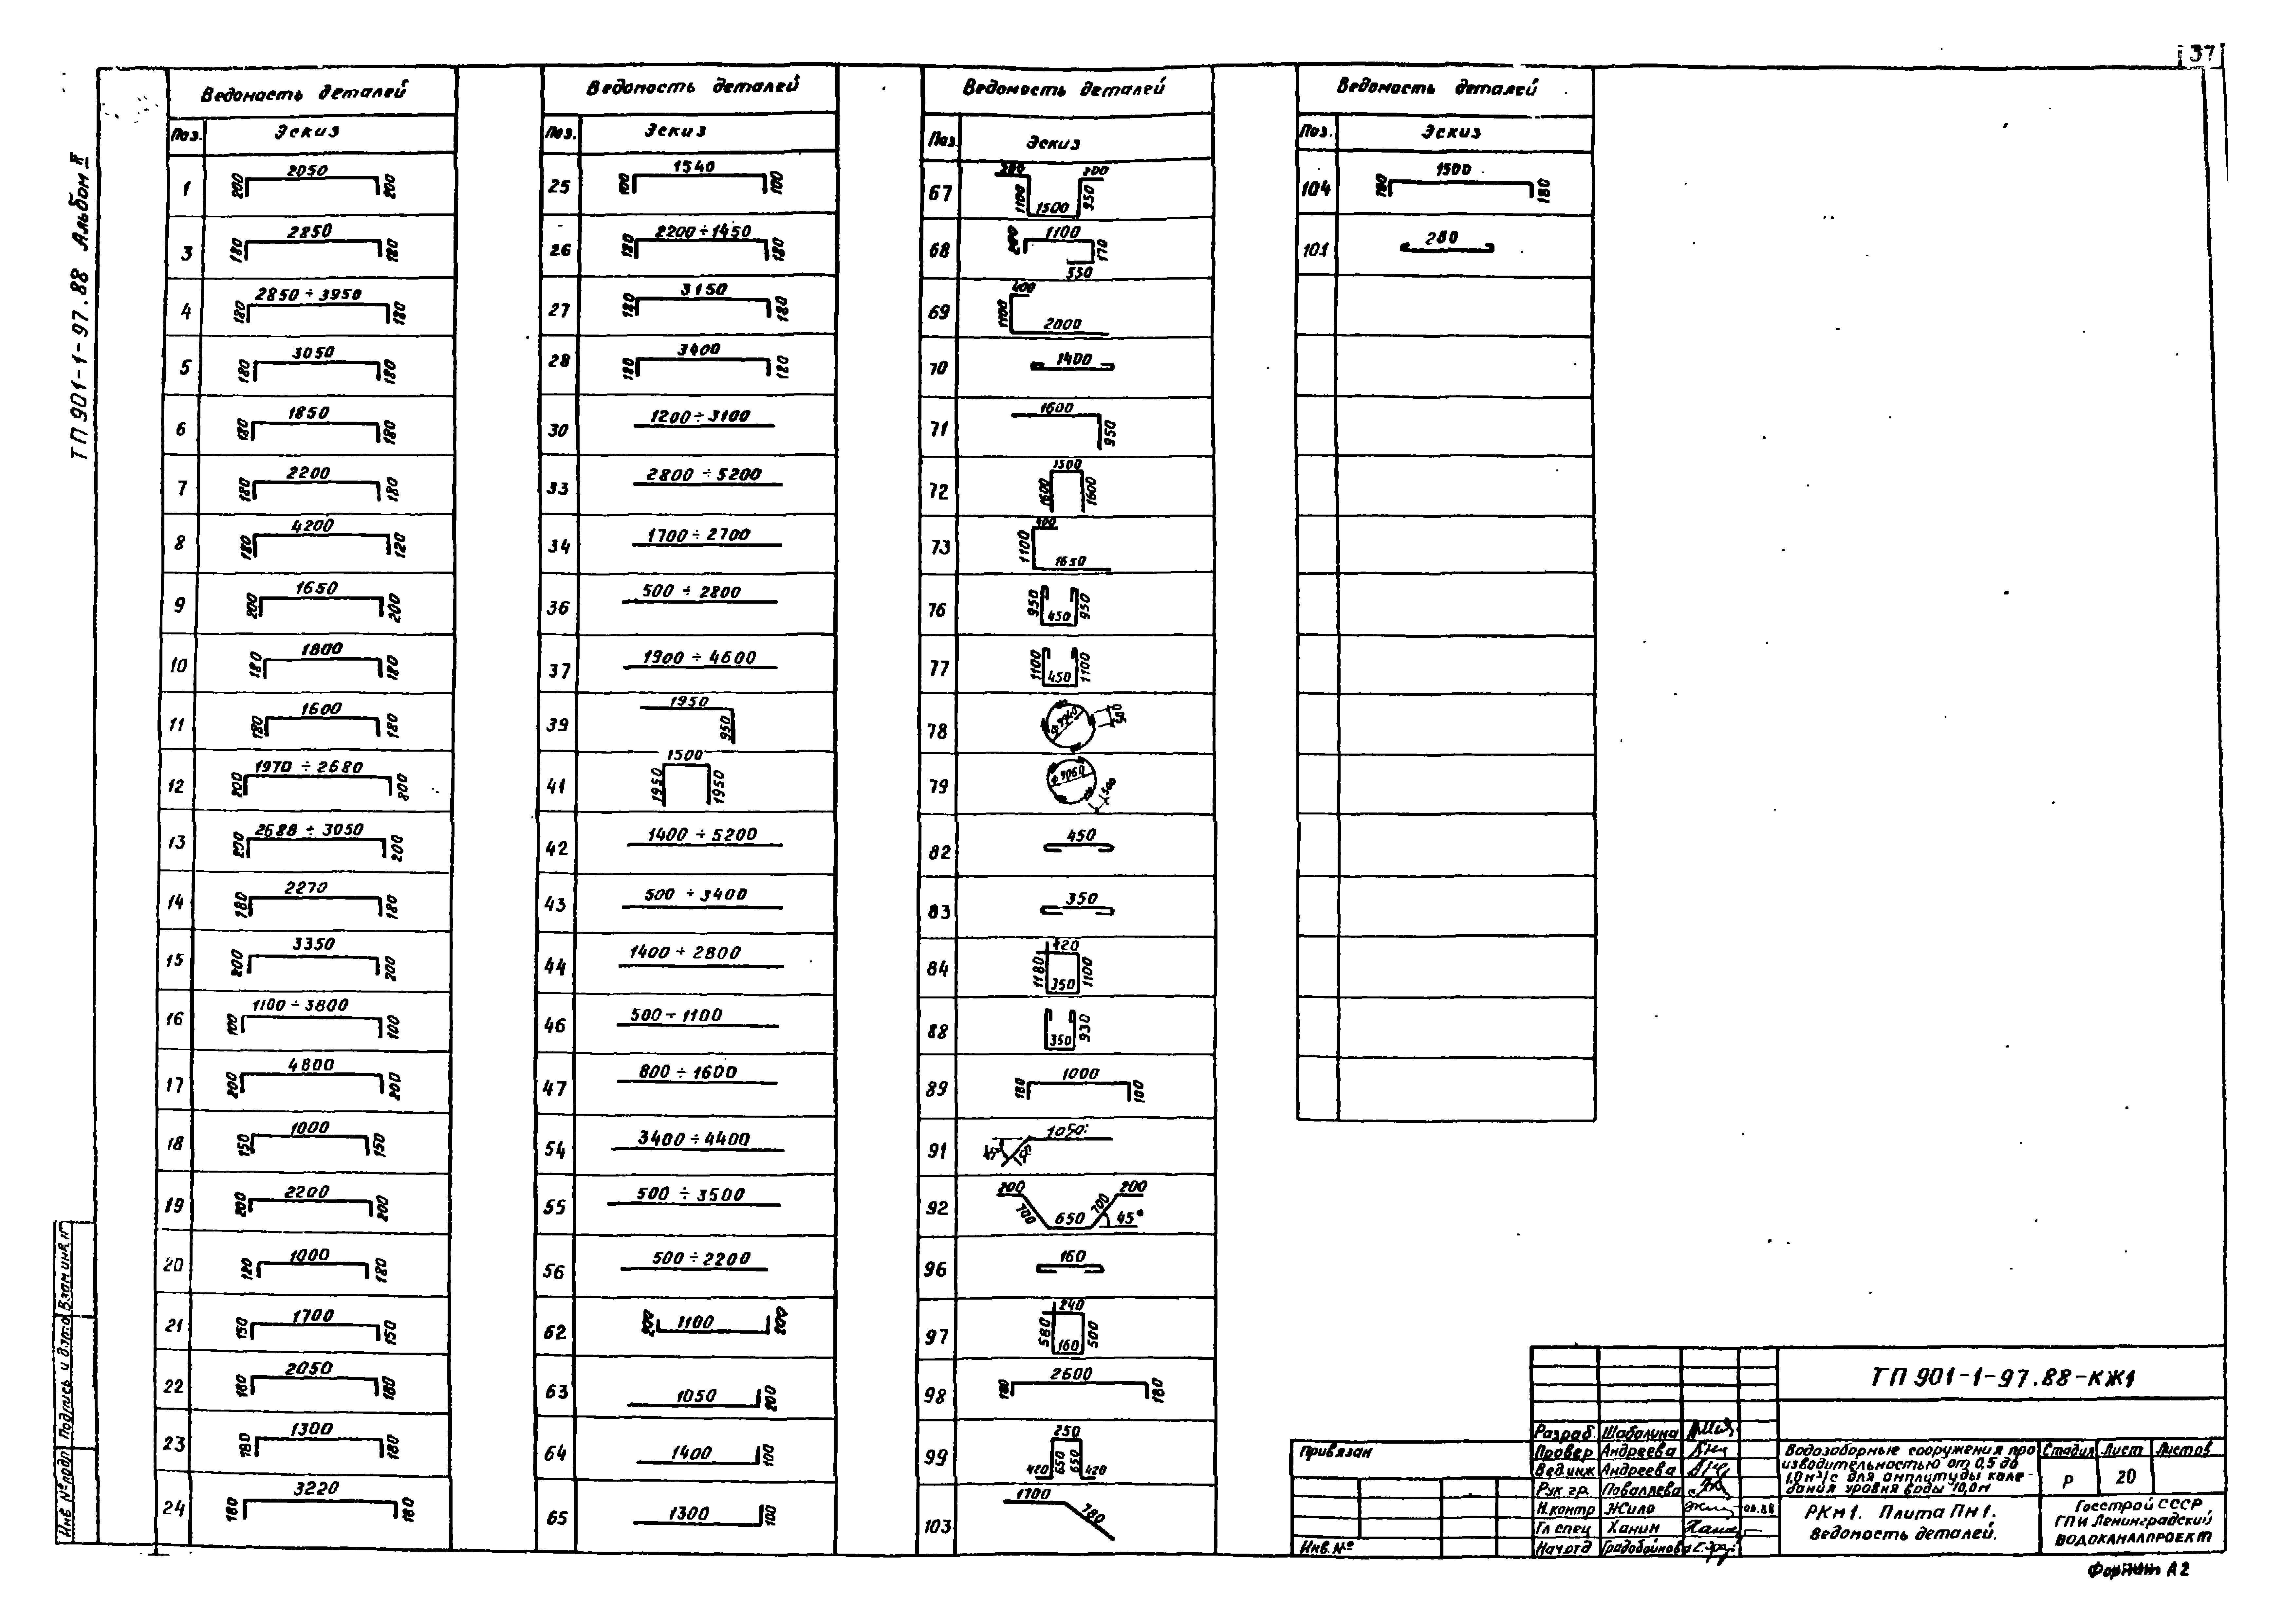 37
ТП 901-1-97.88 Альбом II
Ведомость деталей
Поз. Эскиз
1 200 2050 200
3 180 2850 180
4 180 2850 ÷ 3950 180
5 180 3050 180
6 180 1850 180
7 180 2200 180
8 180 4200 120
9 200 1650 200
10 180 1800 180
11 180 1600 180
12 200 1970 ÷ 2680 200
13 200 2688 ÷ 3050 200
14 180 2270 180
15 200 3350 200
16 100 1100 ÷ 3800 100
17 200 4800 200
18 150 1000 150
19 200 2200 200
20 120 1000 180
21 150 1700 150
22 180 2050 180
23 180 1300 180
24 180 3220 180
Ведомость деталей
Поз. Эскиз
25 100 1540 100
26 180 2200 ÷ 1450 180
27 180 3150 180
28 180 3400 180
30 1200 ÷ 3100
33 2800 ÷ 5200
34 1700 ÷ 2700
36 500 ÷ 2800
37 1900 ÷ 4600
39 1950 950
41 1950 1500 1950
42 1400 ÷ 5200
43 500 ÷ 3400
44 1400 ÷ 2800
46 500 ÷ 1100
47 800 ÷ 1600
54 3400 ÷ 4400
55 500 ÷ 3500
56 500 ÷ 2200
62 200 1100 200
63 1050 200
64 1400 100
65 1300 100
Ведомость деталей
Поз. Эскиз
67 200 1100 1500 950 200
68 200 1100 170 550
69 400 1100 2000
70 1400
71 1600 950
72 1600 1500 1600
73 400 1100 1650
76 950 450 950
77 1100 450 1100
78 500
79 ф 9060 500
82 450
83 350
84 420 1180 350 1100
88 350 930
89 180 1000 180
91 45° 1050
92 200 700 650 700 45° 200
96 160
97 240 580 160 500
98 180 2600 180
99 250 650 650 420 420
103 1700 780
Ведомость деталей
Поз. Эскиз
104 180 1500 180
101 280
Инв № подл Подпись и дата Взам инв. №
ТП 901-1-97.88-КЖ1
Привязан
Инв. №
Разраб. Шабалина
Провер Андреева
Вед.инж Андреева
Рук гр. Поваляева
Н.контр Жило 06.88
Гл спец Ханин
Нач отд Градобойнова
Водозаборные сооружения про
изводительностью от 0,5 до
1,0 м³/с для амплитуды коле-
дания уровня воды 10,0м
Стадия Лист Листов
Р 20
РКм1. Плита Пм1.
Ведомость деталей.
Госстрой СССР
ГПИ Ленинградский
ВОДОКАНАЛПРОЕКТ
Формат А2